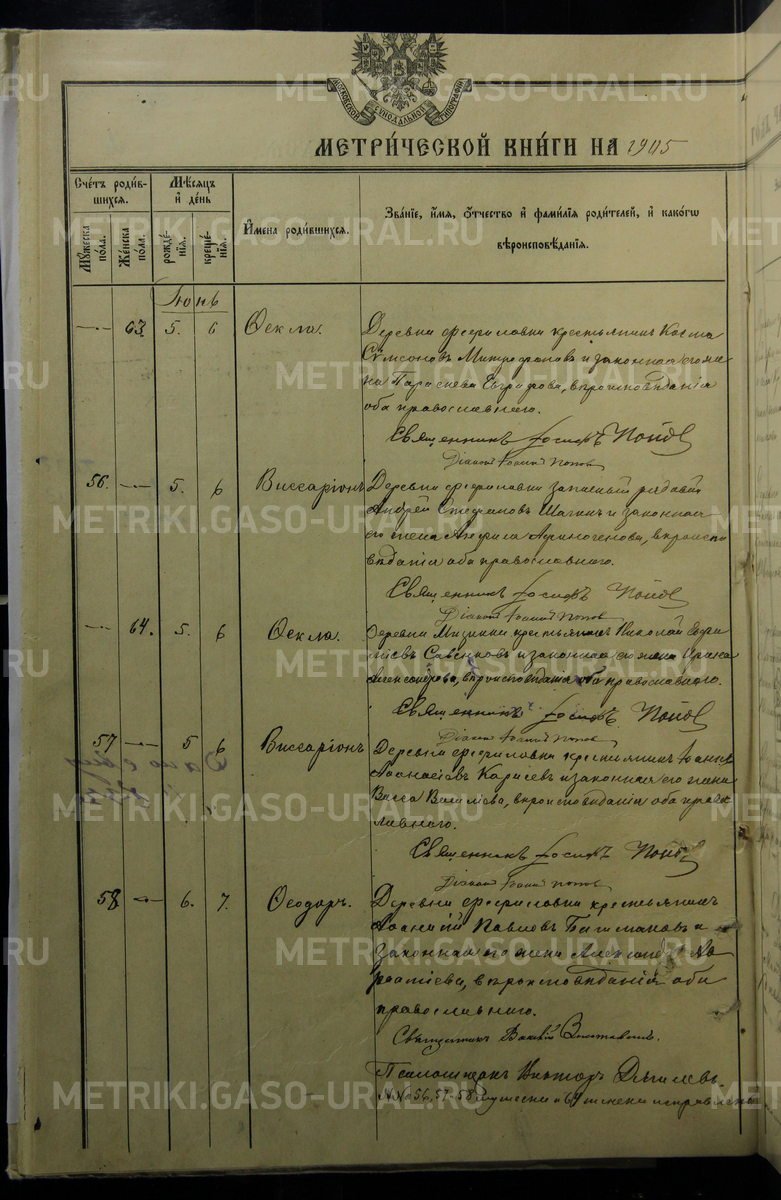 МОСКОВСКОЙ СѴНОДАЛЬНОЙ ТИПОГРАФІИ
МЕТРИ́ЧЕСКОЙ КНИ́ГИ НА 1905
Сче́тъ роди́в-
шихся.
Мѣ́сяцъ
и҆ де́нь
И҆мена роди́вшихся.
Зва́нїе, и҆́мя, ѻ҆́тчество и҆ фами́лїя роди́телей, и҆ како́гѡ
вѣроисповѣ́данїя.
Мꙋ́жеска по́ла.
Же́нска по́ла.
рожде́-нїя.
креще́-нїя.
Іюнь
63 5. 6 Ѳекла. Деревни крестьянинъ Косма
Сѵмсоновъ Митрофановъ и законная его же-
на Параскева Евграфова, вѣроисповѣданія
оба православнаго.
Священникъ Іосифъ Поповъ
Діаконъ Іоаннъ Поповъ
56. 5. 6 Виссаріонъ Деревни запасный рядовой
Андрей Стефановъ Шагинъ и законная
его жена Анфиса Афиногенова, вѣроиспо-
вѣданія оба православнаго.
Священникъ Іосифъ Поповъ
Діаконъ Іоаннъ Поповъ
64. 5. 6 Ѳекла. Деревни крестьянинъ Николай
и законная его жена Ирина
Александрова, вѣроисповѣданія оба православнаго.
Священникъ Іосифъ Поповъ
Діаконъ Іоаннъ Поповъ
57 5 6 Виссаріонъ Деревни крестьянинъ Іоаннъ
Аѳанасіевъ Каргаевъ и законная его жена
Васса Василіева, вѣроисповѣданія оба право-
славнаго.
Священникъ Іосифъ Поповъ
Діаконъ Іоаннъ Поповъ
58 6. 7. Ѳеодоръ. Деревни крестьянинъ
Аѳанасій Павловъ и
законная его жена
вѣроисповѣданія оба
православнаго.
Священникъ
Псаломщикъ Викторъ
№№ 56, 57, 58 мужески и 64 женски исправлены
METRIKI.GASO-URAL.RU